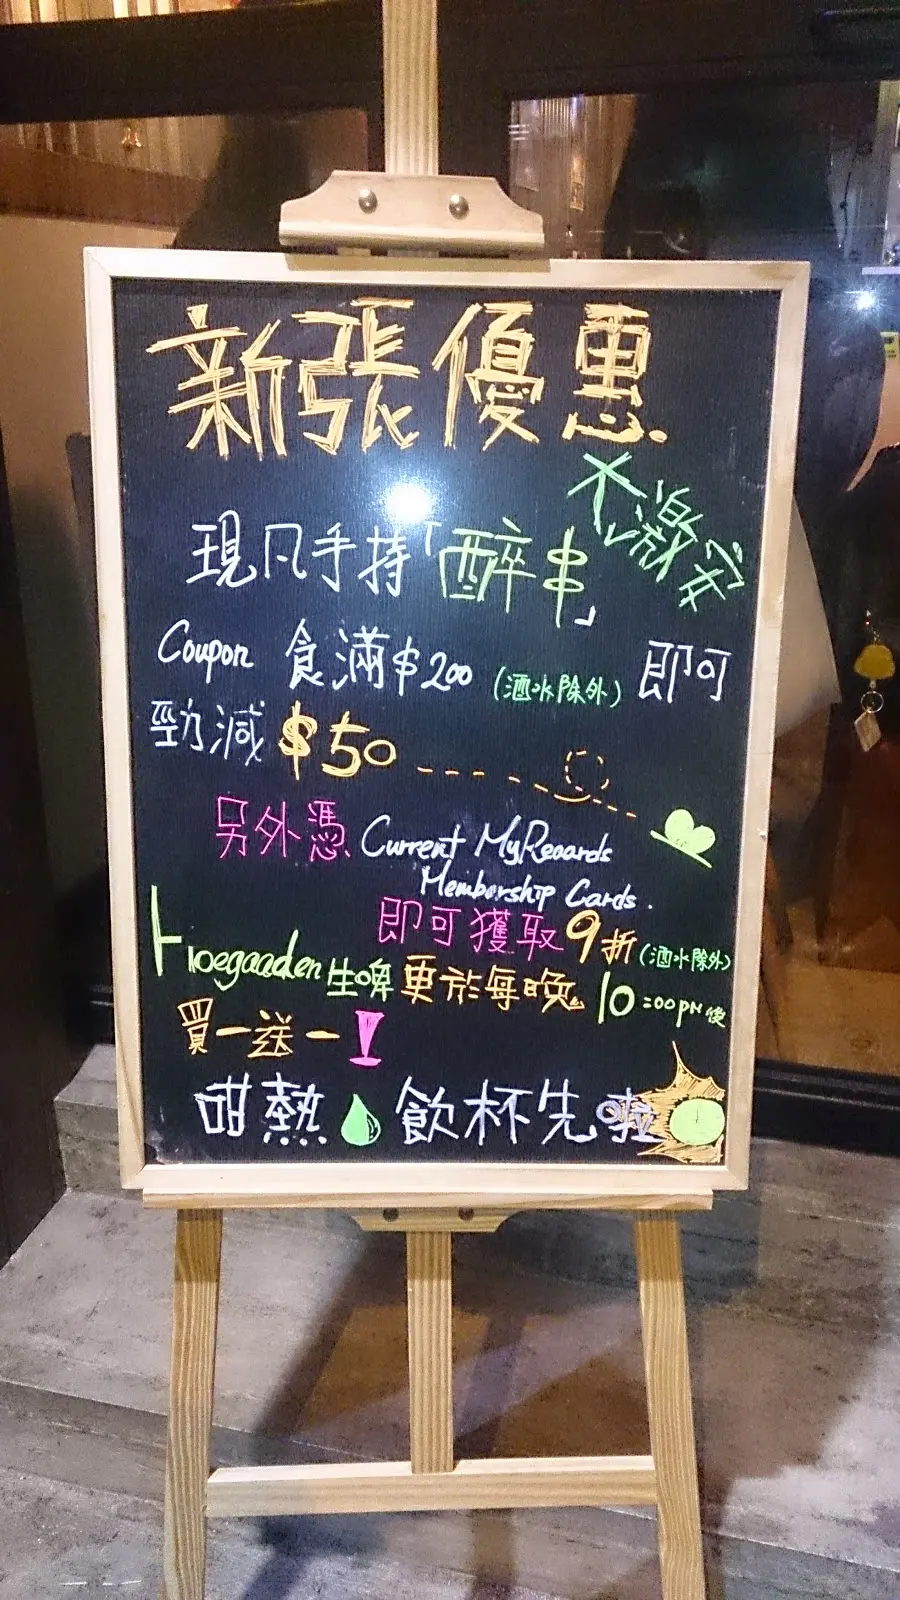 新張優惠
不激安
現凡手持「醉串」
Coupon 食滿$200 (酒水除外) 即可
勁減 $50
另外憑 Current MyRewards
Membership Cards.
即可獲取9折(酒水除外)
Hoegaarden生啤更於每晚10:00pm後
買一送一!
咁熱飲杯先啦